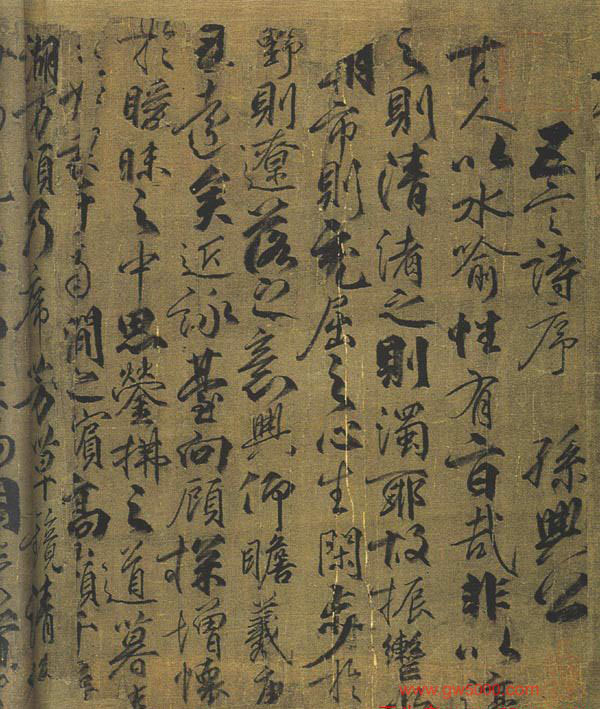 五言詩序 孫興公
古人以水喻性有旨哉非以渟
之則清渚之則濁耶故振轡
朝市則充屈之心生閑步於
野則遼落之意興仰瞻羲唐
已遠矣近詠臺向顧探增懷
於曖昧之中思瑩拂之道暮春
于南澗之賓高嶺千尋
湖万頃乃席芳草鏡清